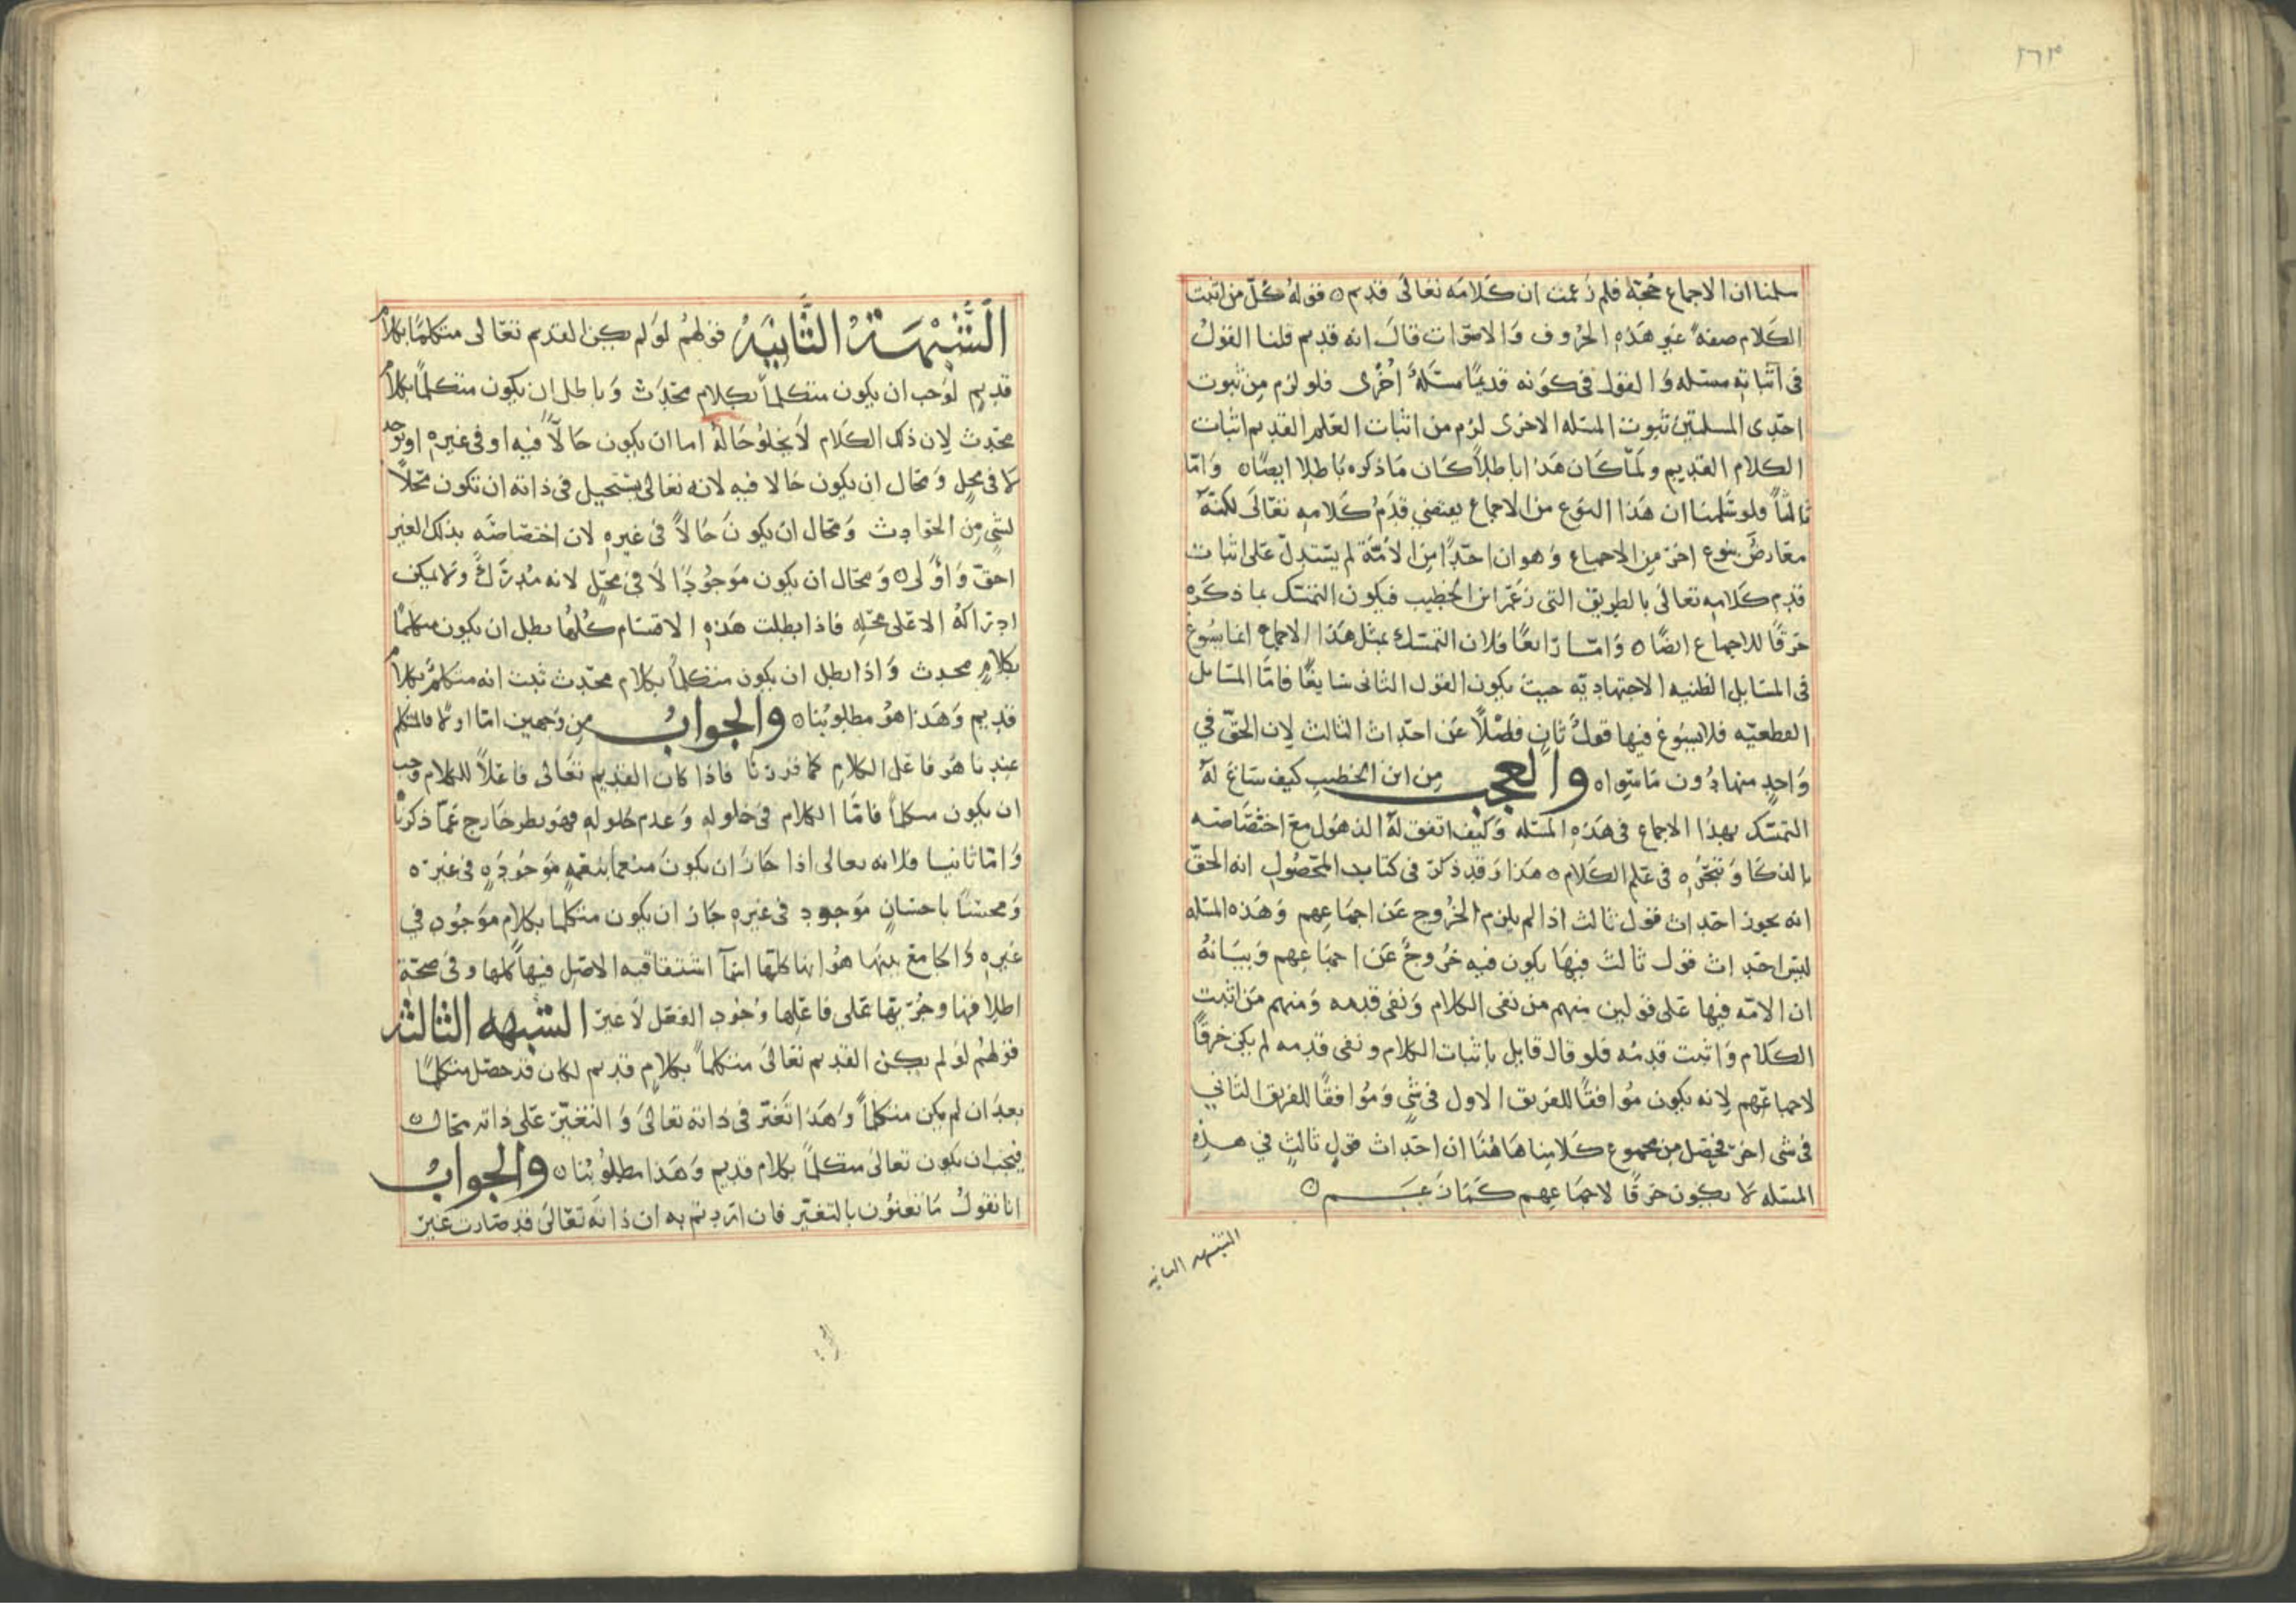 ٢٦٣
سلمنا ان الاجماع حجة فلم زعمت ان كلامه تعالى قديم ٥ قوله كل من اثبت
الكلام صفة غير هذه الحروف والاصوات قال انه قديم قلنا القول
فى اثباته مسئله والقول فى كونه قديمًا مسئلة اخرى فلو لزم من ثبوت
احدى المسلتين ثبوت المسئله الاخرى لزم من اثبات العلم القديم اثبات
الكلام القديم ولما كان هذا باطلاً كان ما ذكره باطلا ايضًا ٥ واما
ثالثاً فلو سلمنا ان هذا النوع من الاجماع يقتضي قدم كلامه تعالى لكنه
معارض بنوع اخر من الاجماع وهو ان احدًا من الامة لم يستدل على اثبات
قدم كلامه تعالى بالطريق التى زعم ابن الخطيب فيكون التمسك بما ذكره
خرقًا للاجماع ايضًا ٥ واما رابعًا فلان التمسك بمثل هذا الاجماع انما يسوغ
فى المسايل الظنيه الاجتهاديه حيث يكون القول الثانى سايغًا فاما المسايل
القطعيه فلا يسوغ فيها قول ثان فضلاً عن احداث الثالث لان الحق في
واحد منها دون ما سواه ٥ والعجب من ابن الخطيب كيف ساغ له
التمسك بهذا الاجماع فى هذه المسئله وكيف اتفق له الذهول مع اختصاصه
بالذكا وتبحره فى علم الكلام ٥ هذا وقد ذكر فى كتاب المحصول انه الحق
انه يجوز احداث قول ثالث اذا لم يلزم الخروج عن اجماعهم وهذه المسئله
ليس احداث قول ثالث فيها يكون فيه خروج عن اجماعهم وبيانه
ان الامه فيها على قولين منهم من نفى الكلام ونفى قدمه ومنهم من اثبت
الكلام واثبت قدمه فلو قال قايل باثبات الكلام ونفى قدمه لم يكن خرقاً
لاجماعهم لانه يكون موافقًا للفريق الاول فى شي وموافقًا للفريق الثاني
فى شى اخر فحصل من مجموع كلامنا هاهنا ان احداث قول ثالث في هذه
المسئله لا يكون خرقًا لاجماعهم كما زعم ٥
الشبهه الثانيه
الشبهة الثانية قولهم لو لم يكن القديم تعالى متكلمًا بكلام
قديم لوجب ان يكون متكلماً بكلام محدث وباطل ان يكون متكلماً بكلام
محدث لان ذلك الكلام لا يخلو حاله اما ان يكون حالاً فيه او فى غيره او يوجد
لا فى محل ومحال ان يكون حالا فيه لانه تعالى يستحيل فى ذاته ان تكون محلاً
لشي من الحوادث ومحال ان يكون حالاً فى غيره لان اختصاصه بذلك الغير
احق واولى ٥ ومحال ان يكون موجودًا لا فى محل لانه مدرك ولا يمكن
ادراكه الا على محله فاذا بطلت هذه الاقسام كلها بطل ان يكون متكلمًا
بكلام محدث واذا بطل ان يكون متكلماً بكلام محدث ثبت انه متكلم بكلام
قديم وهذا هو مطلوبنا ٥ والجواب من وجهين اما اولا فالمتكلم
عندنا هو فاعل الكلام كما قررنا فاذا كان القديم تعالى فاعلاً للكلام وجب
ان يكون متكلماً فاما الكلام فى حلوله وعدم حلوله فهو نظر خارج عما ذكرنا
واما ثانيا فلانه تعالى اذا جاز ان يكون منعما بنعمه موجوده فى غيره
ومحسنًا باحسان موجود فى غيره جاز ان يكون متكلما بكلام موجود في
غيره والجامع بينها هو انها كلها اسماً اشتقاقيه الاصل فيها كلها وفى صحة
اطلاقها وجريها على فاعلها وجود الفعل لا غير الشبهه الثالثه
قولهم لو لم يكن القديم تعالى متكلماً بكلام قديم لكان قد حصل متكلمًا
بعد ان لم يكن متكلماً وهذا تغير فى ذاته تعالى والتغير على ذاته محال ٥
فيجب ان يكون تعالى متكلماً بكلام قديم وهذا مطلوبنا ٥ والجواب
انا نقول ما تعنون بالتغير فان اردتم به ان ذاته تعالى قد صارت غير